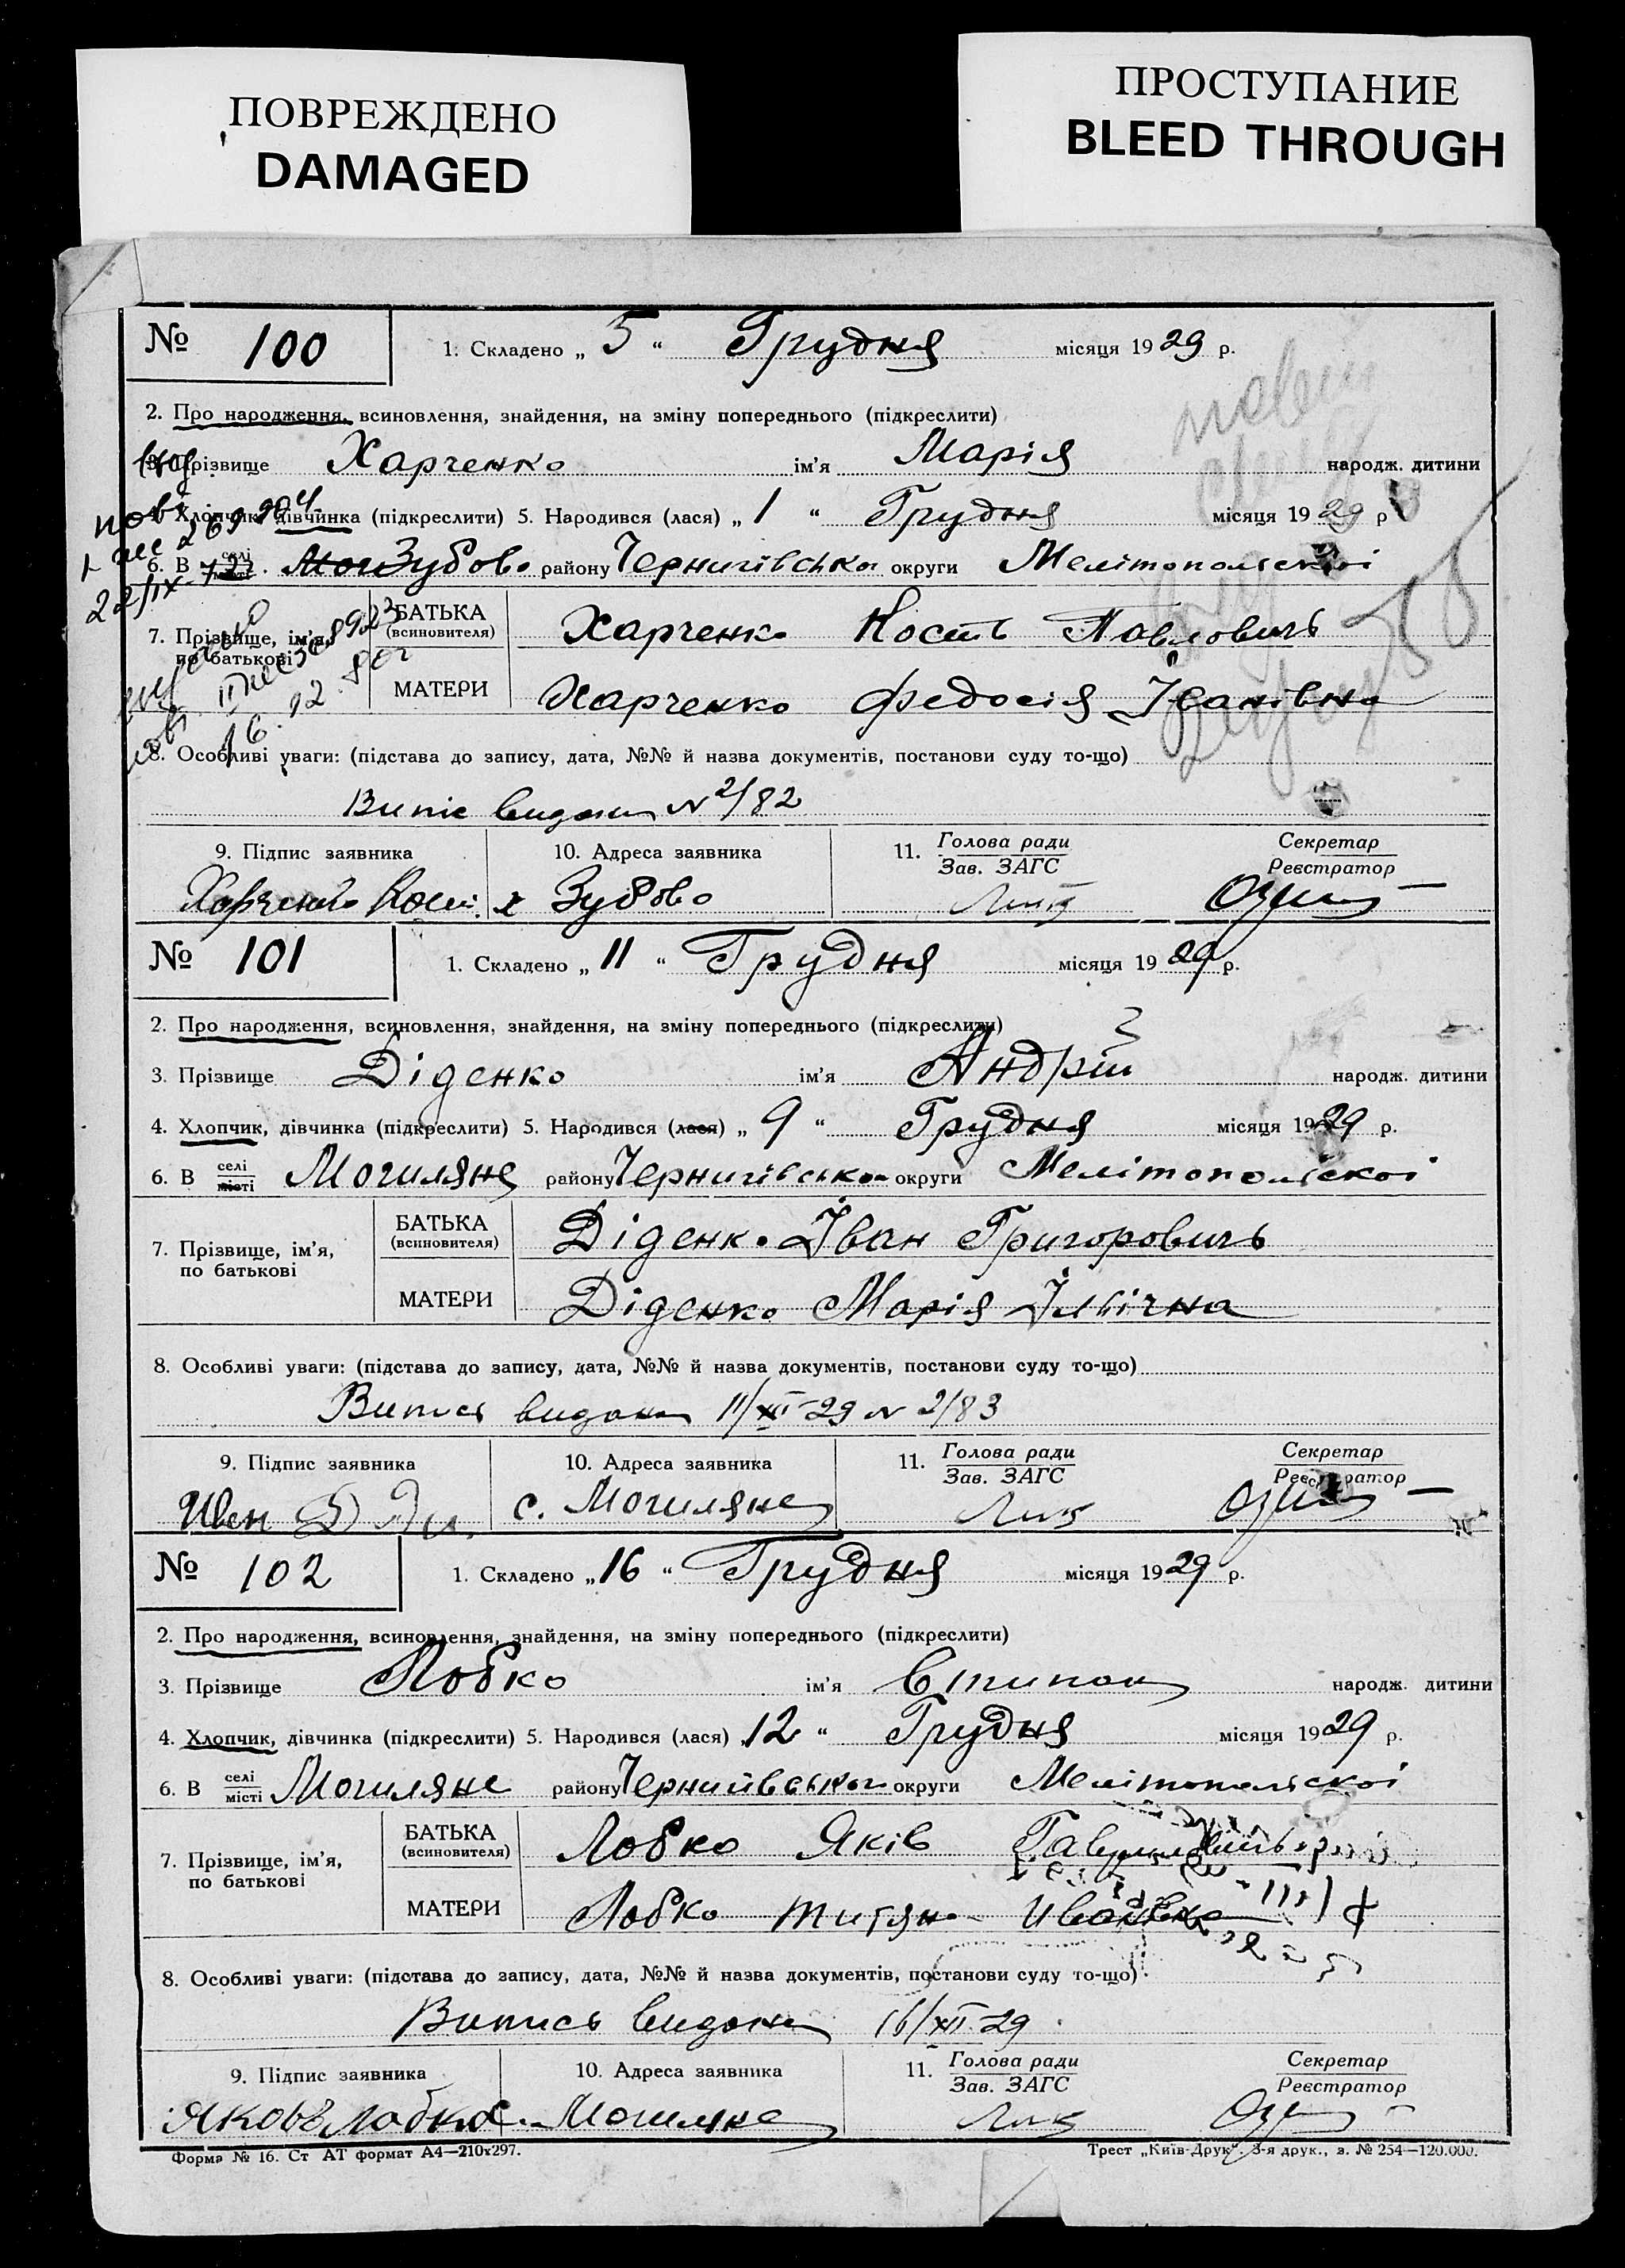 ПОВРЕЖДЕНО
DAMAGED
ПРОСТУПАНИЕ
BLEED THROUGH
№ 100 1. Складено „ 5 “ Грудня місяця 1929 р.
2. Про народження, всиновлення, знайдення, на зміну попереднього (підкреслити)
3. Прізвище Харченко ім'я Марія народж. дитини
4. Хлопчик, дівчинка (підкреслити) 5. Народився (лася) „ 1 “ Грудня місяця 1929 р
6. В селі місті Зубово району Чернигівськой округи Мелітопольскоі
7. Прізвище, ім'я, по батькові БАТЬКА (всиновителя) Харченко Кость Павловичь
МАТЕРИ Харченко Федосія Іванівна
8. Особливі уваги: (підстава до запису, дата, №№ й назва документів, постанови суду то-що)
Випис видани N 2/82
9. Підпис заявника 10. Адреса заявника 11. Голова ради Зав. ЗАГС Секретар Реєстратор
Зубово
№ 101 1. Складено „ 11 “ Грудня місяця 1929 р.
2. Про народження, всиновлення, знайдення, на зміну попереднього (підкреслити)
3. Прізвище Діденко ім'я Андрій народж. дитини
4. Хлопчик, дівчинка (підкреслити) 5. Народився (лася) „ 9 “ Грудня місяця 1929 р.
6. В селі місті Могиляне району Чернигівськой округи Мелітопольскоі
7. Прізвище, ім'я, по батькові БАТЬКА (всиновителя) Діденко Іван Григоровичь
МАТЕРИ Діденко Марія Ільїчна
8. Особливі уваги: (підстава до запису, дата, №№ й назва документів, постанови суду то-що)
Випись видани 11/XII-29 N 2/83
9. Підпис заявника 10. Адреса заявника 11. Голова ради Зав. ЗАГС Секретар Реєстратор
с. Могиляне
№ 102 1. Складено „ 16 “ Грудня місяця 1929 р.
2. Про народження, всиновлення, знайдення, на зміну попереднього (підкреслити)
3. Прізвище Лобко ім'я Степан народж. дитини
4. Хлопчик, дівчинка (підкреслити) 5. Народився (лася) „ 12 “ Грудня місяця 1929 р.
6. В селі місті Могиляне району Чернигівськой округи Мелітопольскоі
7. Прізвище, ім'я, по батькові БАТЬКА (всиновителя) Лобко Яків
МАТЕРИ Лобко Титяна
8. Особливі уваги: (підстава до запису, дата, №№ й назва документів, постанови суду то-що)
Випись видани 16/XII-29
9. Підпис заявника 10. Адреса заявника 11. Голова ради Зав. ЗАГС Секретар Реєстратор
Яковъ Лобко с. Могиляне
Форма № 16. Ст АТ формат А4—210х297. Трест „Київ-Друк“. 3-я друк., з. № 254—120.000.